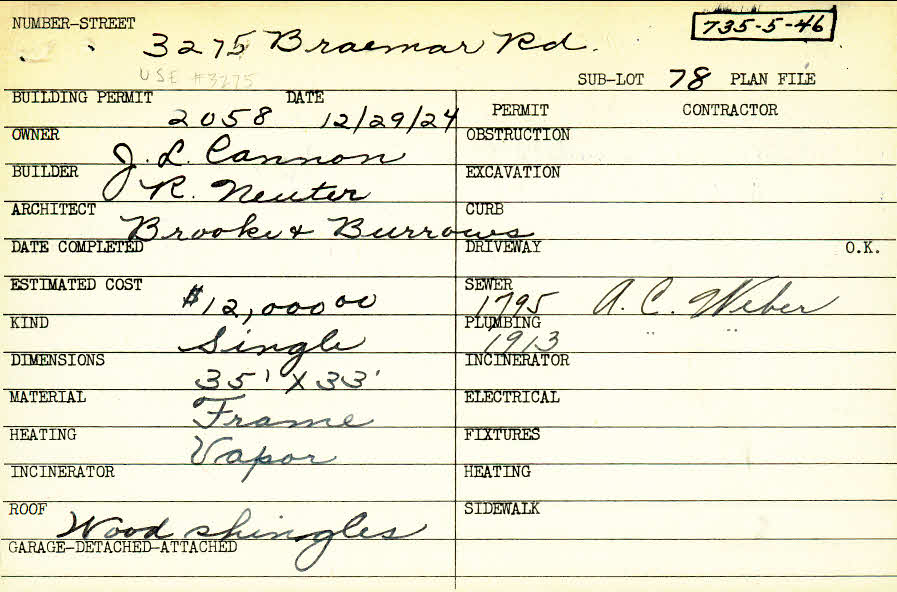 NUMBER-STREET 3275 Braemar Rd. 735-5-46
USE #3275
SUB-LOT 78 PLAN FILE
BUILDING PERMIT 2058 DATE 12/29/24
PERMIT CONTRACTOR
OWNER J. L. Cannon
OBSTRUCTION
BUILDER R. Neuter
EXCAVATION
ARCHITECT Brooke & Burrows
CURB
DATE COMPLETED
DRIVEWAY O.K.
ESTIMATED COST $12,000 00
SEWER 1795 A. C. Weber
KIND Single
PLUMBING 1913 " "
DIMENSIONS 35' X 33'
INCINERATOR
MATERIAL Frame
ELECTRICAL
HEATING Vapor
FIXTURES
INCINERATOR
HEATING
ROOF Wood shingles
SIDEWALK
GARAGE-DETACHED-ATTACHED